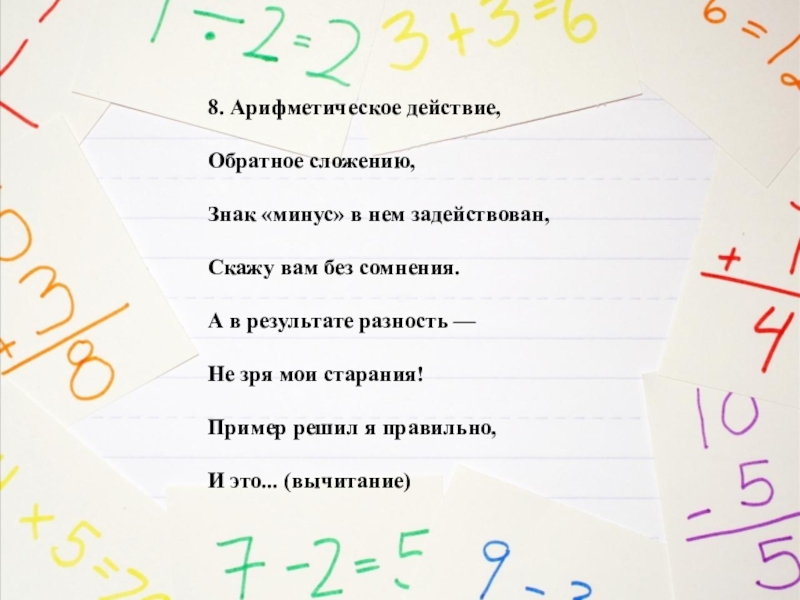 1 ÷ 2 = 2
3 + 3 = 6
6 =
8. Арифметическое действие,
Обратное сложению,
Знак «минус» в нем задействован,
Скажу вам без сомнения.
А в результате разность —
Не зря мои старания!
Пример решил я правильно,
И это... (вычитание)
3
+
8
+
4
10
- 5
5
+ 5 =
7 - 2 = 5
9 -